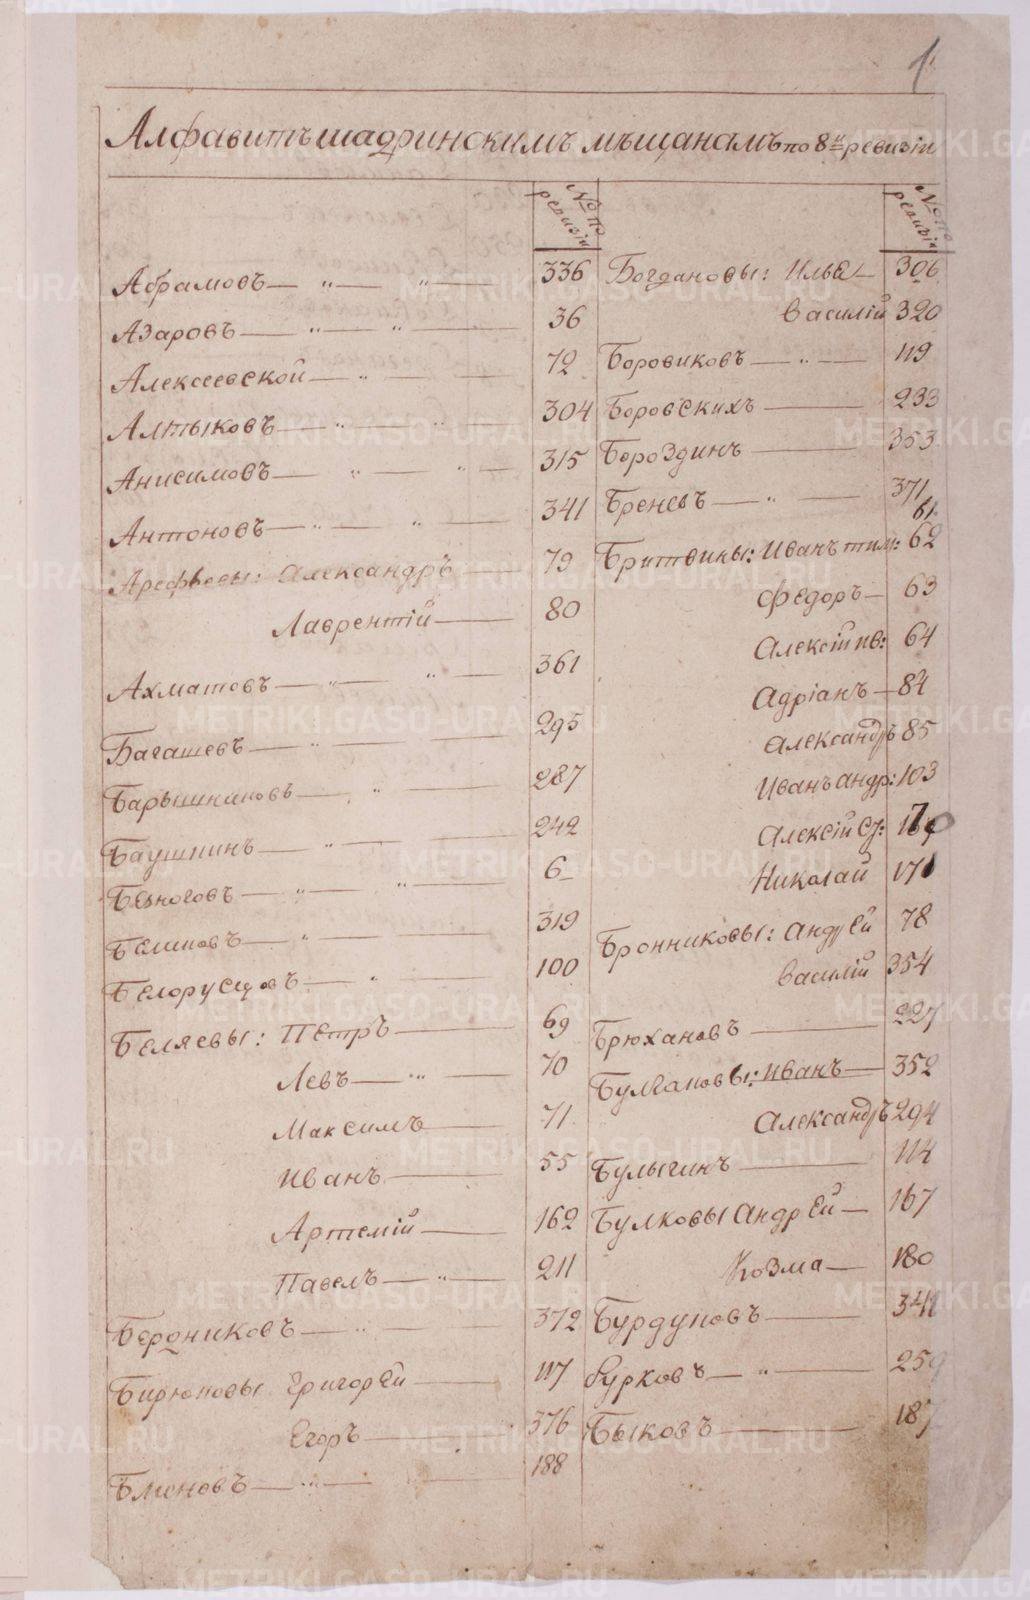 1
Алфавитъ шадринскимъ мѣщанамъ по 8й ревизіи
№ по ревизіи
Абрамовъ — „ — „ — 336
Азаровъ — „ — „ — 36
Алексеевской — „ — 72
Алтыковъ — „ — „ — 304
Анисимовъ — „ — „ — 315
Антоновъ — „ — „ — 341
Арефьевы: Александръ — 79
Лаврентій — 80
Ахматовъ — „ — „ — 361
Багашевъ — „ — 295
Барышниковъ — „ — 287
Баушкинъ — „ — 242
Безноговъ — „ — „ — 6
319
Белорусцовъ — „ — 100
Беляевы: Петръ — 69
Левъ — „ — 70
Максимъ — 71
Иванъ — 55
Артемій — 162
Павелъ — „ — 211
Бердниковъ — „ — 372
Бирюковы Григорей — 117
Егоръ — 376
Блиновъ — „ — 188
№ по ревизіи
Богдановы: Илья — 306
Василій 320
Боровиковъ — „ — 119
Боровскихъ — 233
Бороздинъ — 353
Бреневъ — „ — 371
61
Бритвины: Иванъ тим: 62
Федоръ — 63
Алексій ив: 64
Адріанъ — 84
Александръ 85
Иванъ андр: 103
Алексій Ст: 170
Николай 171
Бронниковы: Андрей 78
Василій 354
Брюхановъ — 227
Булгаковы: Иванъ — 352
Александръ 294
Булыгинъ — 114
Булковы Андрей — 167
Козма — 180
Бурдуковъ — 342
Бурковъ — „ — 259
Быковъ — 187
METRIKI.GASO-URAL.RU